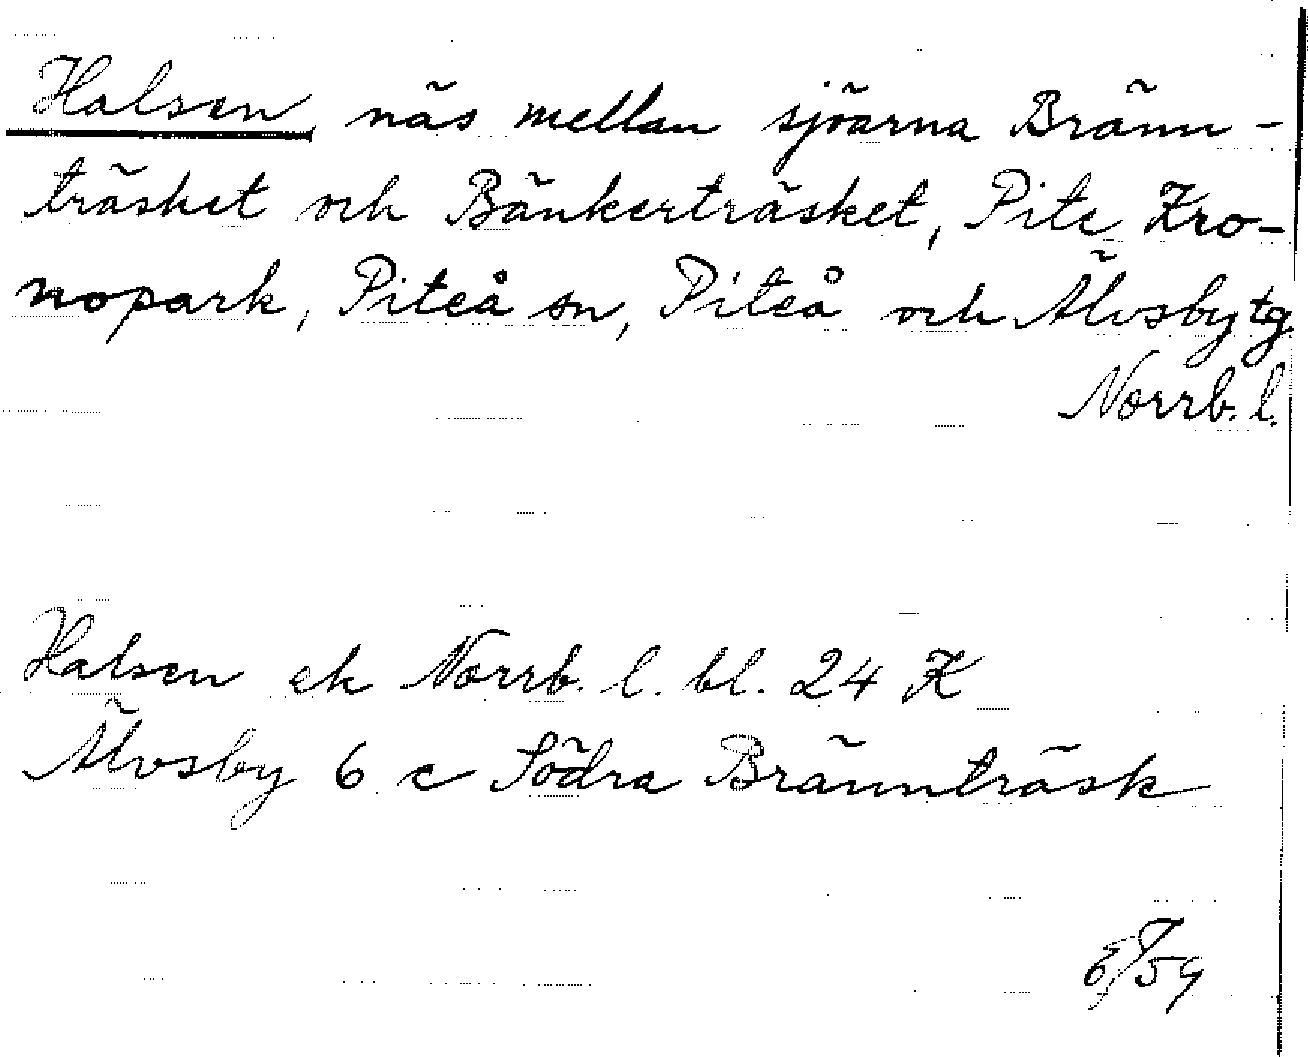 Halsen näs mellan sjöarna Bränn-
träsket och Bänkerträsket, Pite Kro-
nopark, Piteå sn, Piteå och Älvsby tg
Norrb. l.
Halsen ek Norrb. l. bl. 24 K
Älvsby 6 c Södra Brännträsk